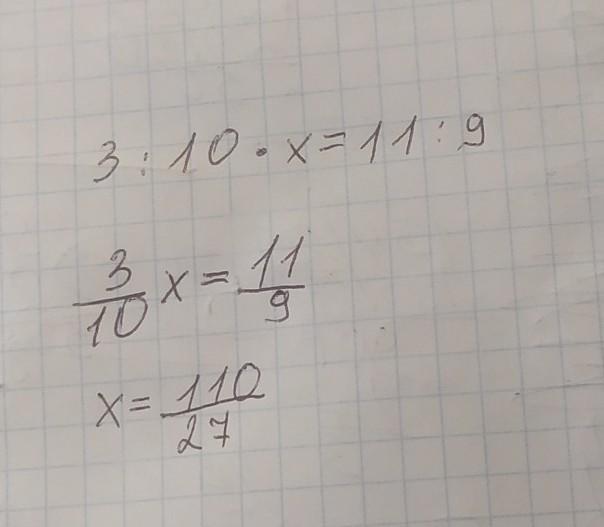 3 : 10 · x = 11 : 9
3/10 x = 11/9
x = 110/27